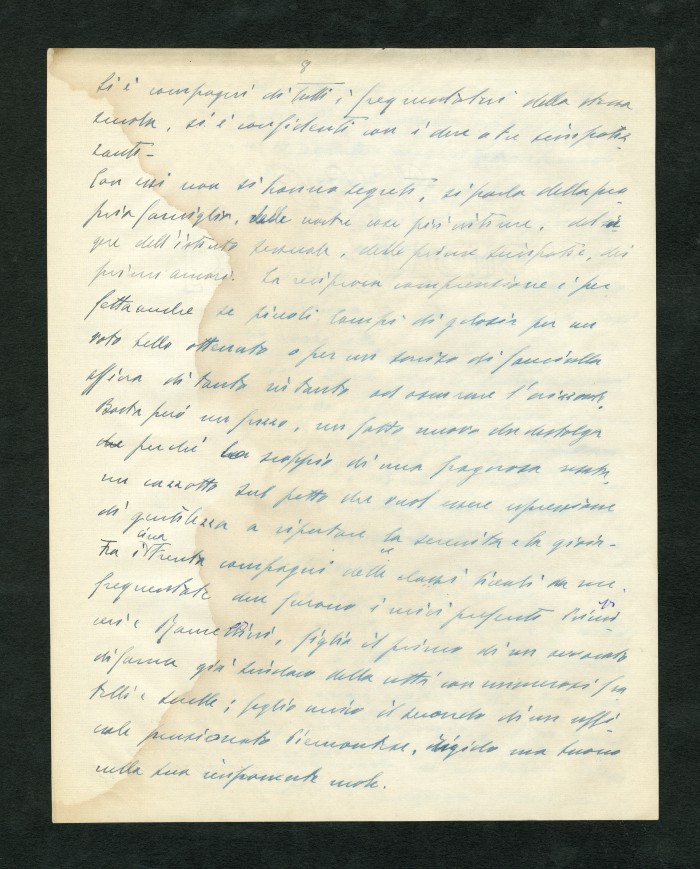 8
Si è compagni di tutti i frequentatori della stessa
scuola, si è confidenti con i due o tre simpatiz-
zanti -
Con essi non si hanno segreti, si parla della pro
pria famiglia, delle nostre cose più intime, del
gere dell'istinto sessuale, delle prime simpatie, dei
primi amori. La reciproca comprensione è per
fetta anche se piccoli lampi di gelosia per un
voto bello ottenuto o per un sorriso di fanciulla
affiora di tanto in tanto ad oscurare l'orizzonte.
Basta però un pezzo, un fatto nuovo che distolga
che perché lo scoppio di una fragorosa
un cazzotto sul petto che vuol essere espressione
di gentilezza a riportare la serenità e la gioia -
Fra i circa trenta compagni delle classi liceali da me
frequentate due furono i miei preferiti
e figlio il primo di un avvocato
di fama già sindaco della città con numerosi fra
telli e sorelle; figlio unico il secondo di un uffi
ciale pensionato Piemontese, rigido ma buono
nella sua imponente mole.